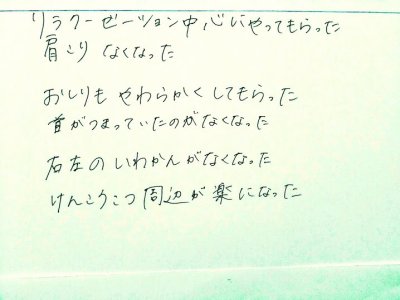 リラクーゼーション中心にやってもらった
肩こりなくなった
おしりもやわらかくしてもらった
首がつまっていたのがなくなった
右左のいわかんがなくなった
けんこうこつ周辺が楽になった